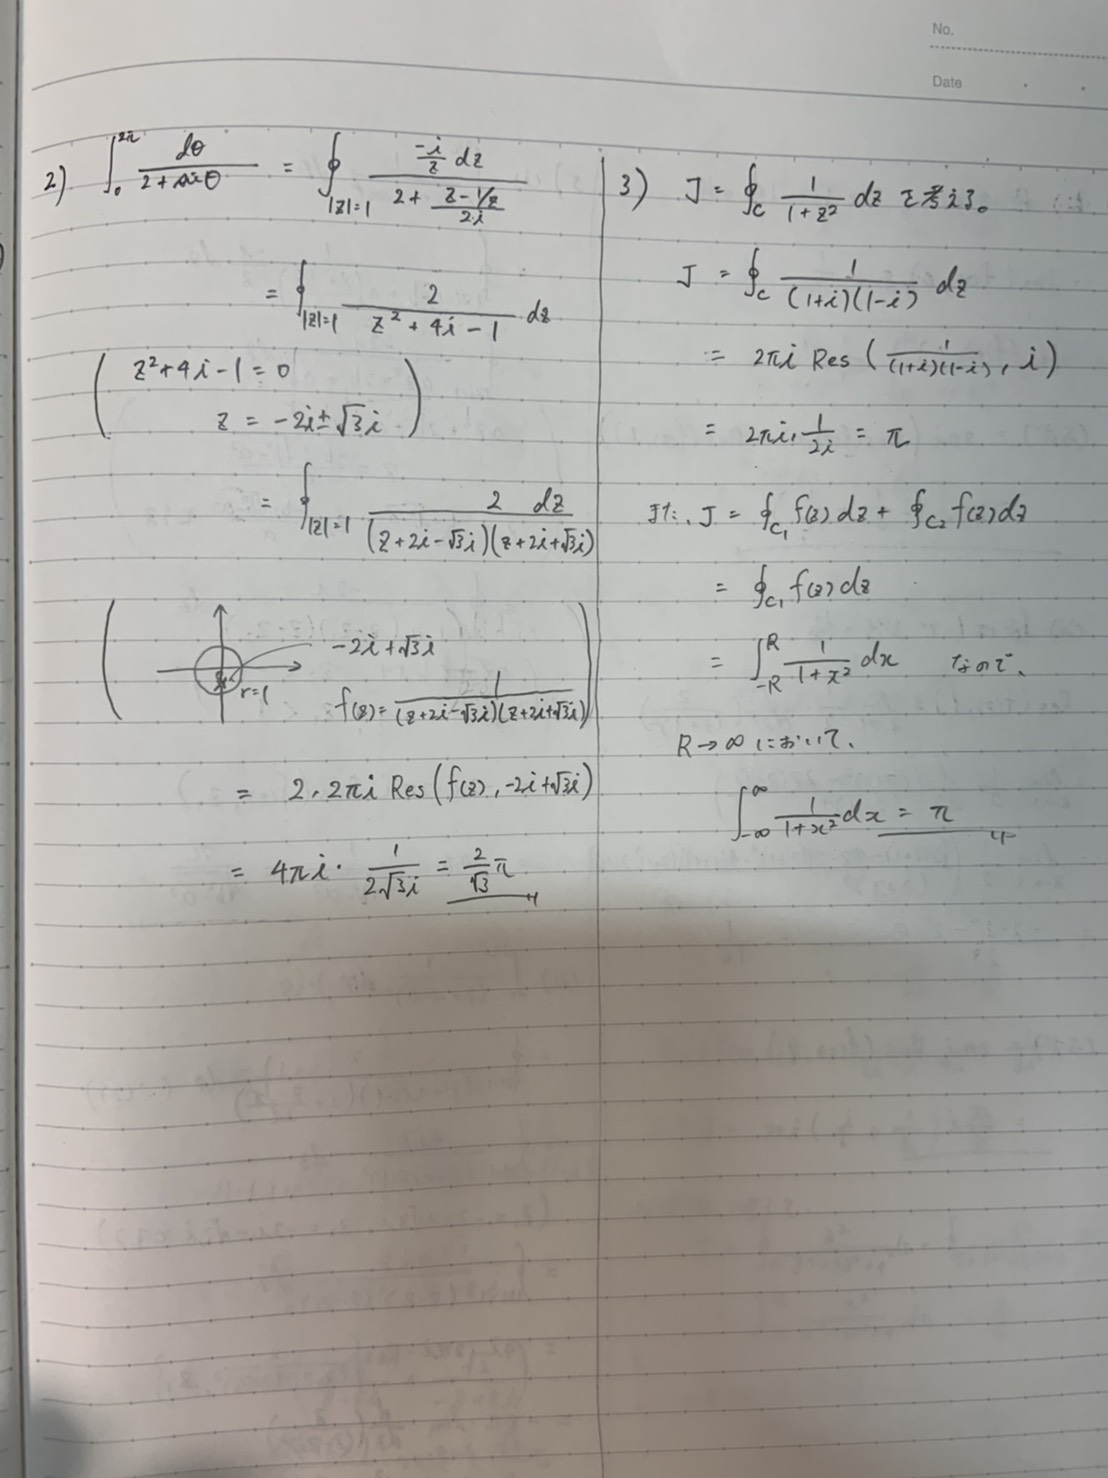 No.
Date
2) ∫_0^{2π} dθ/(2+sinθ) = ∮_{|z|=1} (-i/z dz)/(2 + (z-1/z)/2i)
= ∮_{|z|=1} 2/(z²+4i-1) dz
( z²+4i-1=0
z = -2i±√3i )
= ∮_{|z|=1} 2dz/((z+2i-√3i)(z+2i+√3i))
-2i+√3i
r=1
f(z)= 1/((z+2i-√3i)(z+2i+√3i))
= 2・2πi Res(f(z), -2i+√3i)
= 4πi・1/(2√3i) = 2/√3 π
3) J = ∮_C 1/(1+z²) dz を考える。
J = ∮_C 1/((1+i)(1-i)) dz
= 2πi Res(1/((1+i)(1-i)), i)
= 2πi・1/2i = π
また、J = ∮_{C1} f(z)dz + ∮_{C2} f(z)dz
= ∮_{C1} f(z)dz
= ∫_{-R}^{R} 1/(1+x²) dx なので、
R→∞ において、
∫_{-∞}^{∞} 1/(1+x²) dx = π